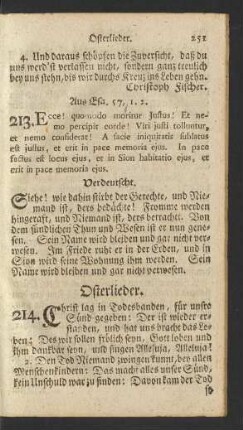 Osterlieder. 251
4. Und daraus schöpfen die Zuversicht, daß du
uns werd'st verlassen nicht, sondern ganz treulich
bey uns stehn, bis wir durchs Kreuz ins Leben gehn.
Christoph Fischer.
Aus Esa. 57, 1. 2.
213. Ecce! quomodo moritur Justus! Et ne-
mo percipit corde! Viri justi tolluntur,
et nemo considerat! A facie iniquitatis sublatus
est justus, et erit in pace memoria ejus. In pace
factus est locus ejus, et in Sion habitatio ejus, et
erit in pace memoria ejus.
Verdeutscht.
Siehe! wie dahin stirbt der Gerechte, und Nie-
mand ist, ders bedächte! Fromme werden
hingeraft, und Niemand ist, ders betrachtet. Von
dem sündlichen Thun und Wesen ist er nun gene-
sen. Sein Name wird bleiben und gar nicht ver-
wesen. Im Friede ruht er in der Erden, und in
Sion wird seine Wohnung ihm werden. Sein
Name wird bleiben und gar nicht verwesen.
Osterlieder.
214. Christ lag in Todesbanden, für unsre
Sünd gegeben: Der ist wieder er-
standen, und hat uns bracht das Le-
ben; Des wir sollen frölich seyn, Gott loben und
ihm dankbar seyn, und singen Alleluja, Alleluja!
2. Den Tod Niemand zwingen kunnt, bey allen
Menschenkindern: Das macht alles unsre Sünd,
kein Unschuld war zu finden: Davon kam der Tod
so